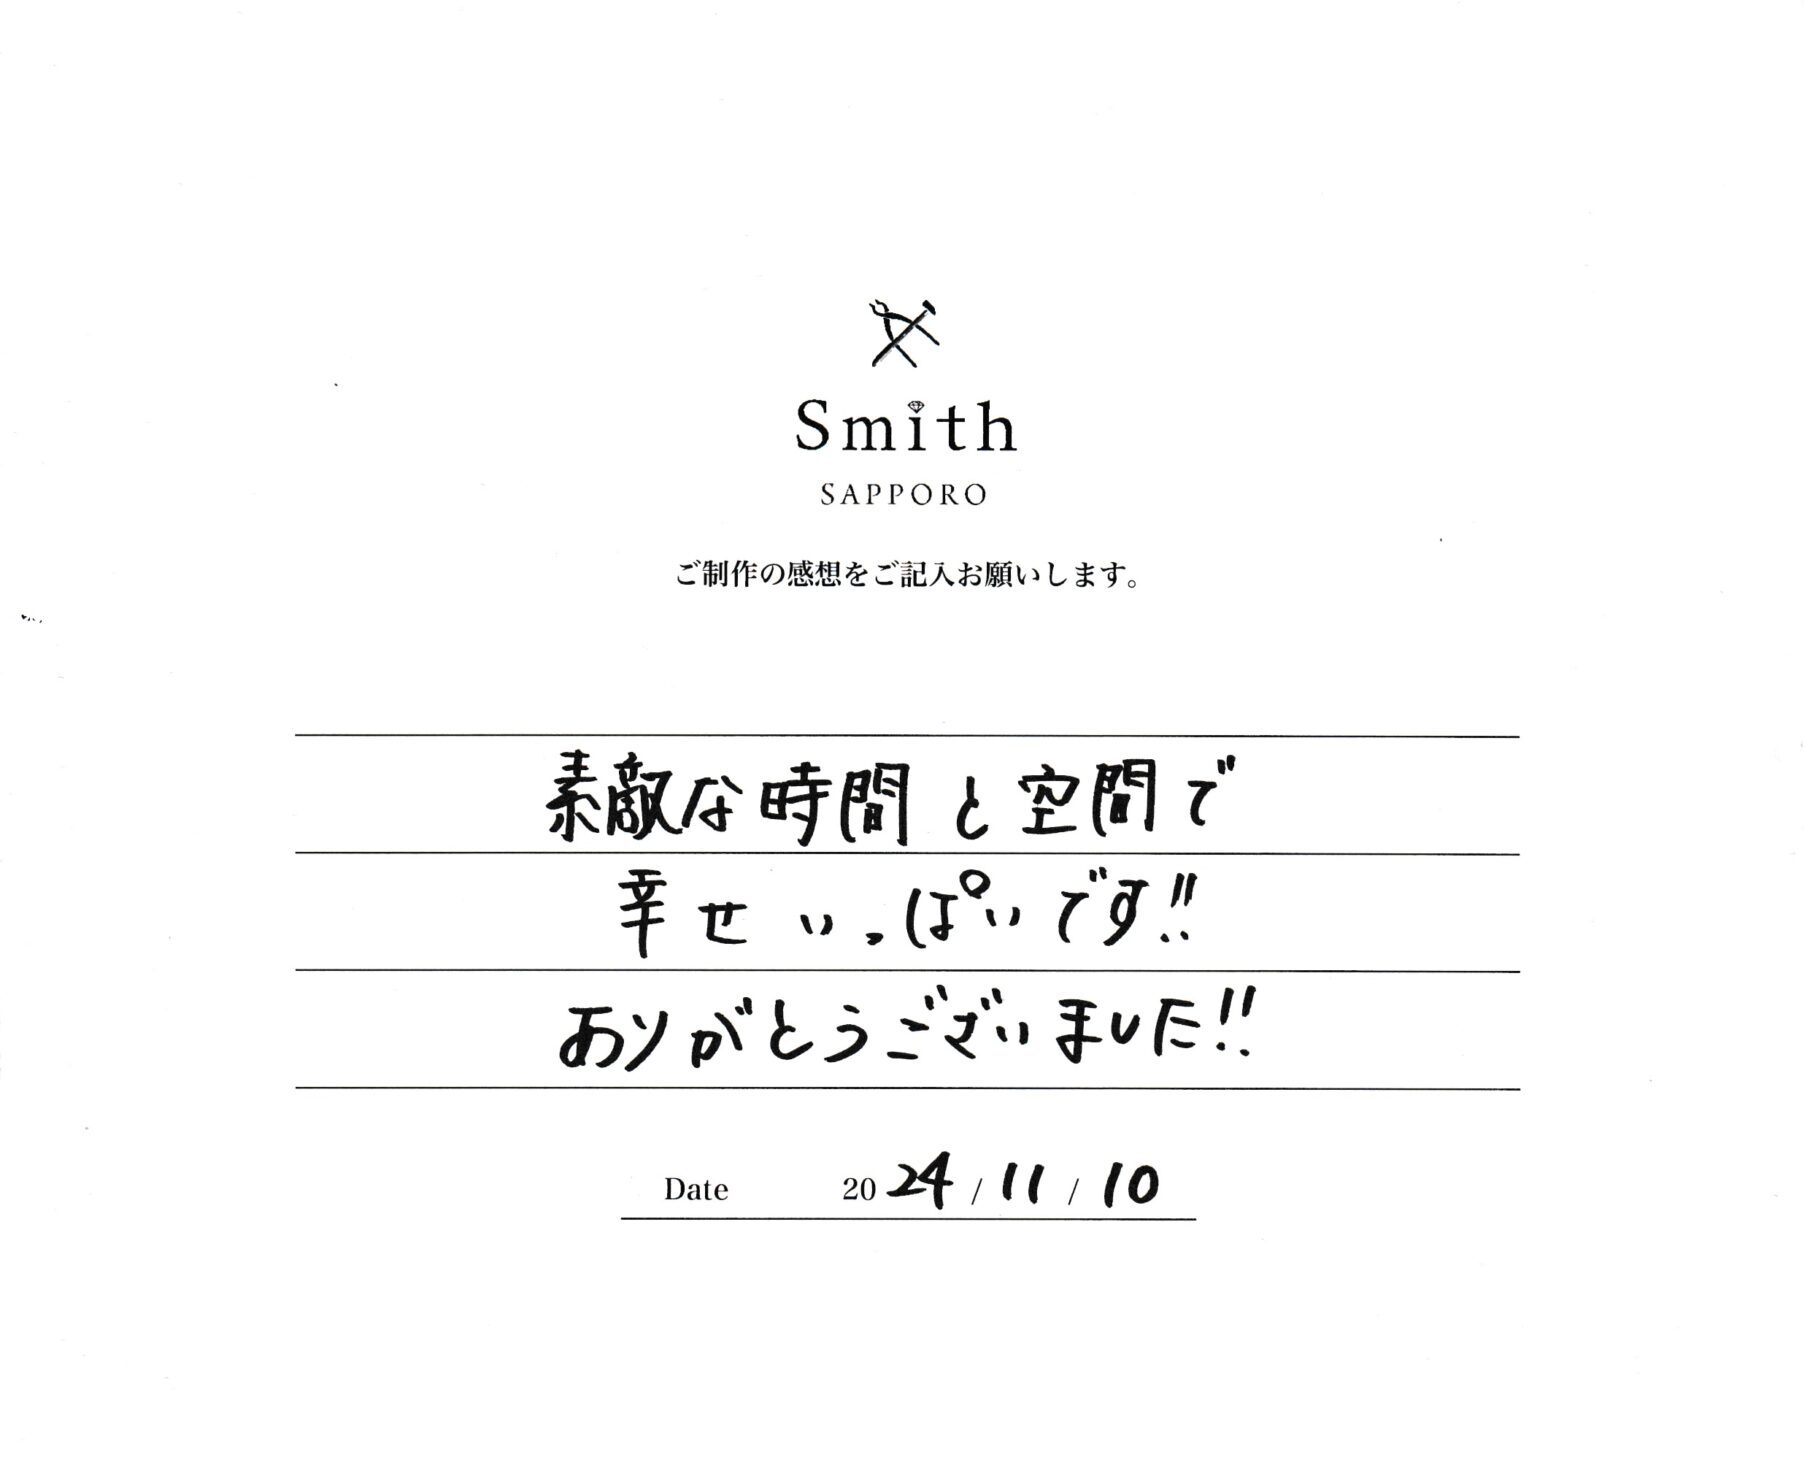 Smith
SAPPORO
ご制作の感想をご記入お願いします。
素敵な時間と空間で
幸せいっぱいです!!
ありがとうございました!!
Date 2024/11/10